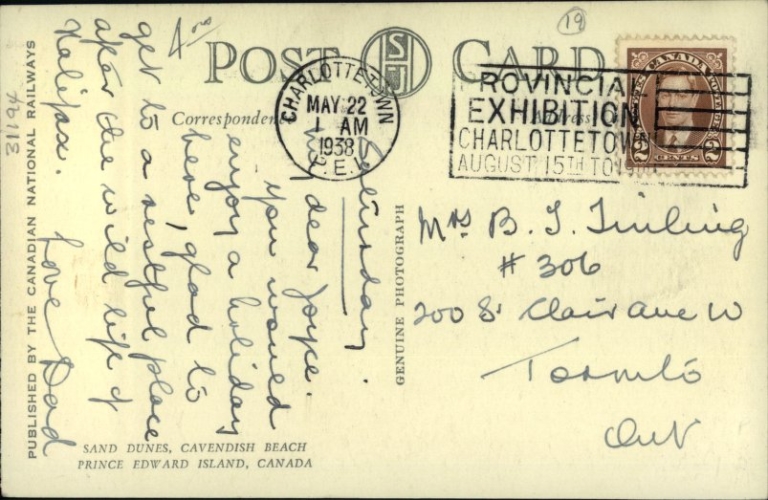 19
4
POST CARD
SHJ
Correspondence
Address
CHARLOTTETOWN
MAY 22
1 AM
1938
P.E.I.
PROVINCIAL
EXHIBITION
CHARLOTTETOWN
AUGUST 15TH TO 19TH
CANADA
2 CENTS 2
Saturday.
My dear Joyce.
you would
enjoy a holiday
here, glad to
get to a restful place
after the wild life of
Halifax.
Love Dad
Mrs B. T. Tinling
# 306
200 St Clair Ave W
Toronto
Ont
GENUINE PHOTOGRAPH
SAND DUNES, CAVENDISH BEACH
PRINCE EDWARD ISLAND, CANADA
PUBLISHED BY THE CANADIAN NATIONAL RAILWAYS
31194